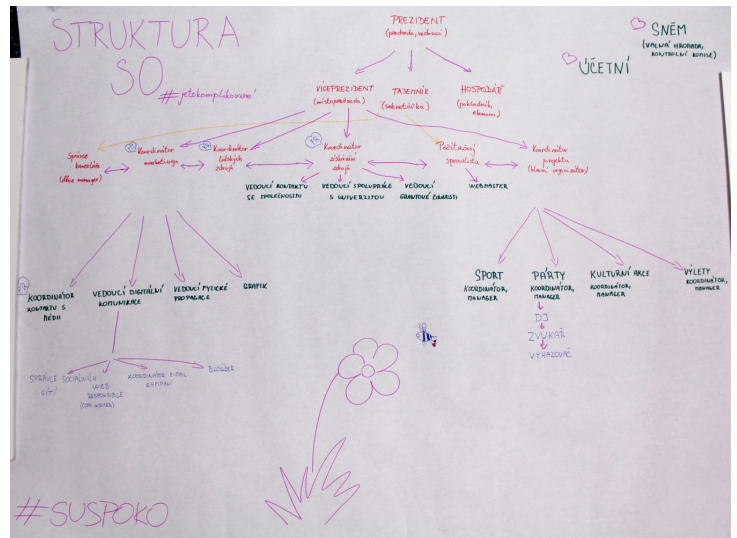 STRUKTURA
SO
#jetokomplikované
PREZIDENT
(předseda, vedoucí)
SNĚM
(VALNÁ HROMADA,
KONTROLNÍ KOMISE)
ÚČETNÍ
VÍCEPREZIDENT
(místopředseda)
TAJEMNÍK
(sekretářka)
HOSPODÁŘ
(pokladník,
ekonom)
Správce
kanceláře
(office manager)
PR
Koordinátor
marketingu
Koordinátor
lidských
zdrojů
Koordinátor
získávání
zdrojů
Počítačový
specialista
Koordinátor
projektu
(hlavní organizátor)
VEDOUCÍ KONTAKTU
SE SPOLEČNOSTMI
VEDOUCÍ SPOLUPRÁCE
S UNIVERZITOU
VEDOUCÍ
GRANTOVÉ ČINNOSTI
WEBMASTER
KOORDINÁTOR
KONTAKTU S
MÉDII
VEDOUCÍ DIGITÁLNÍ
KOMUNIKACE
VEDOUCÍ FYZICKÉ
PROPAGACE
GRAFIK
SPORT
KOORDINÁTOR,
MANAGER
PÁRTY
KOORDINÁTOR,
MANAGER
KULTURNÍ AKCE
KOORDINÁTOR,
MANAGER
VÝLETY
KOORDINÁTOR,
MANAGER
DJ
ZVUKAŘ
VYHAZOVAČ
SPRÁVCE SOCIÁLNÍCH
SÍTÍ
WEB
RESPONSIBLE
KOORDINÁTOR E-MAIL
KAMPANÍ
BLOGGER
#SUSPOKO